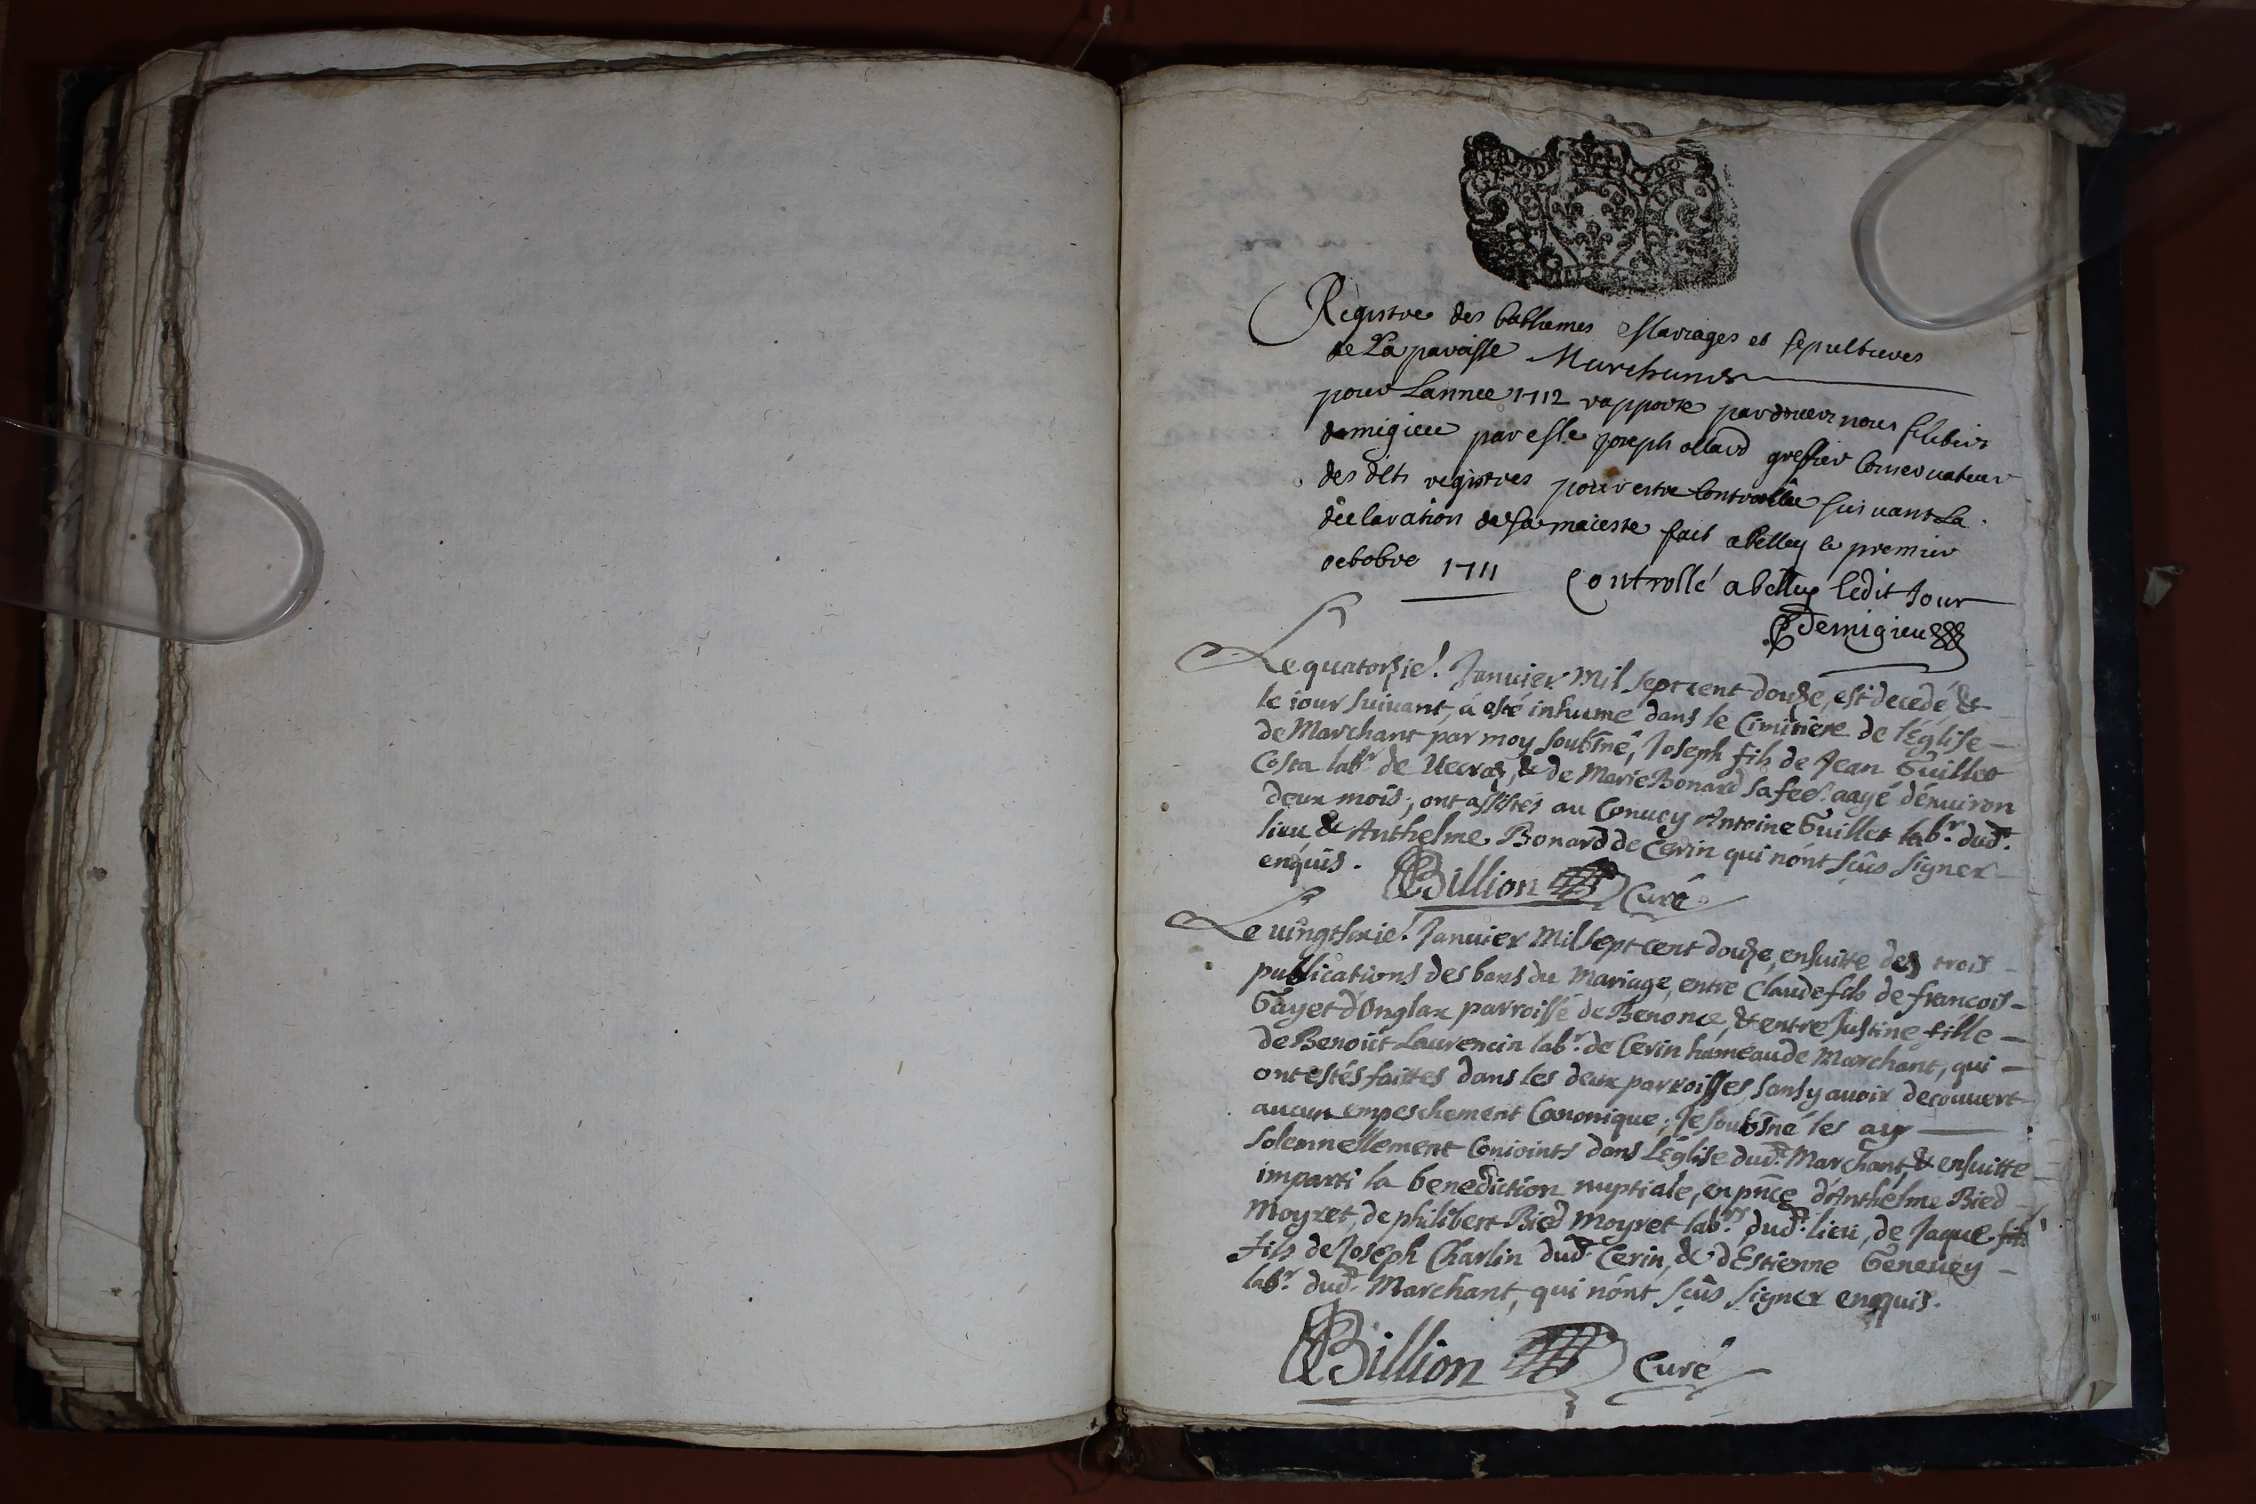 Registre des bathemes Mariages et sepultures
de La paroisse Marchand
pour Lannee 1712 rapporte pardevers nous
demigieu par Joseph ollard greffier Conservateur
des dits registres pour estre Controllée suivant La
declaration de sa maieste fait a belley le premier
octobre 1711 Controllé a belley ledit Jour
Demigieu
Le quatorzie. Janvier Mil sept cent douze, est decedé &
le iour suivant, á esté inhumé dans le Cimitiere de l'Église
de Marchant par moy soubsné, Joseph fils de Jean Guillet
Costa labr. de & de Marie Bonard sa fee. aagé d'environ
deux mois; ont assistés au Convoy Antoine Guillet labr. dud.
lieu & Anthelme Bonard de Cerin qui n'ont sçûs signer
enquis. Billion Curé
Le vingtsixie. Janvier Mil sept cent douze, ensuitte des trois
publications des bans du Mariage, entre Claude fils de françois
Gayet d'Onglax parroisse de Benonce, & entre Justine fille
de Benoiit Laurencin labr. de Cerin hameau de Marchant, qui
ont estés faittes dans les deux parroisses sans y avoir decouvert
aucun empeschement Canonique; Je soubsné les ay
solemnellement Conioints dans L'Église dud. Marchant, & ensuitte
imparti la benediction nuptiale, en pñce d'Anthelme Bied
Moyret, de philibert Bied Moyret labrs. dud. lieu, de Jaque fils
fils de Joseph Charlin dud. Cerin, & d'Estienne Genevey
labr. dud. Marchant, qui n'ont sçûs signer enquis.
Billion Curé